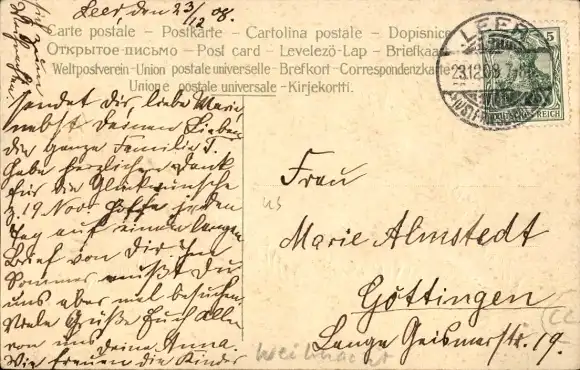 Leer, den 23/12 08.
Carte postale – Postkarte – Cartolina postale – Dopisnice
Открытое письмо – Post card – Levelező-Lap – Briefkaart
Weltpostverein – Union postale universelle – Brefkort – Correspondenzkarte
Unione postale universale – Kirjekortti.
LEER
23.12.08
(OSTFRIESLAND)
5
REICH
sendet Dir, liebe Marie
nebst Deinen Lieben
die ganze Familie J.
Habe herzlichen Dank
für die Glückwünsche
z. 19 Nov. Hoffe jeden
Tag auf einen langen
Brief von Dir. Im
Sommer müßt Du
uns aber mal besuchen.
Viele Grüße Euch allen
von uns Deine Anna.
Wir freuen die Kinder
Frau
Marie Almstedt
Göttingen
Lange Geismarstr. 19.
Weihnacht